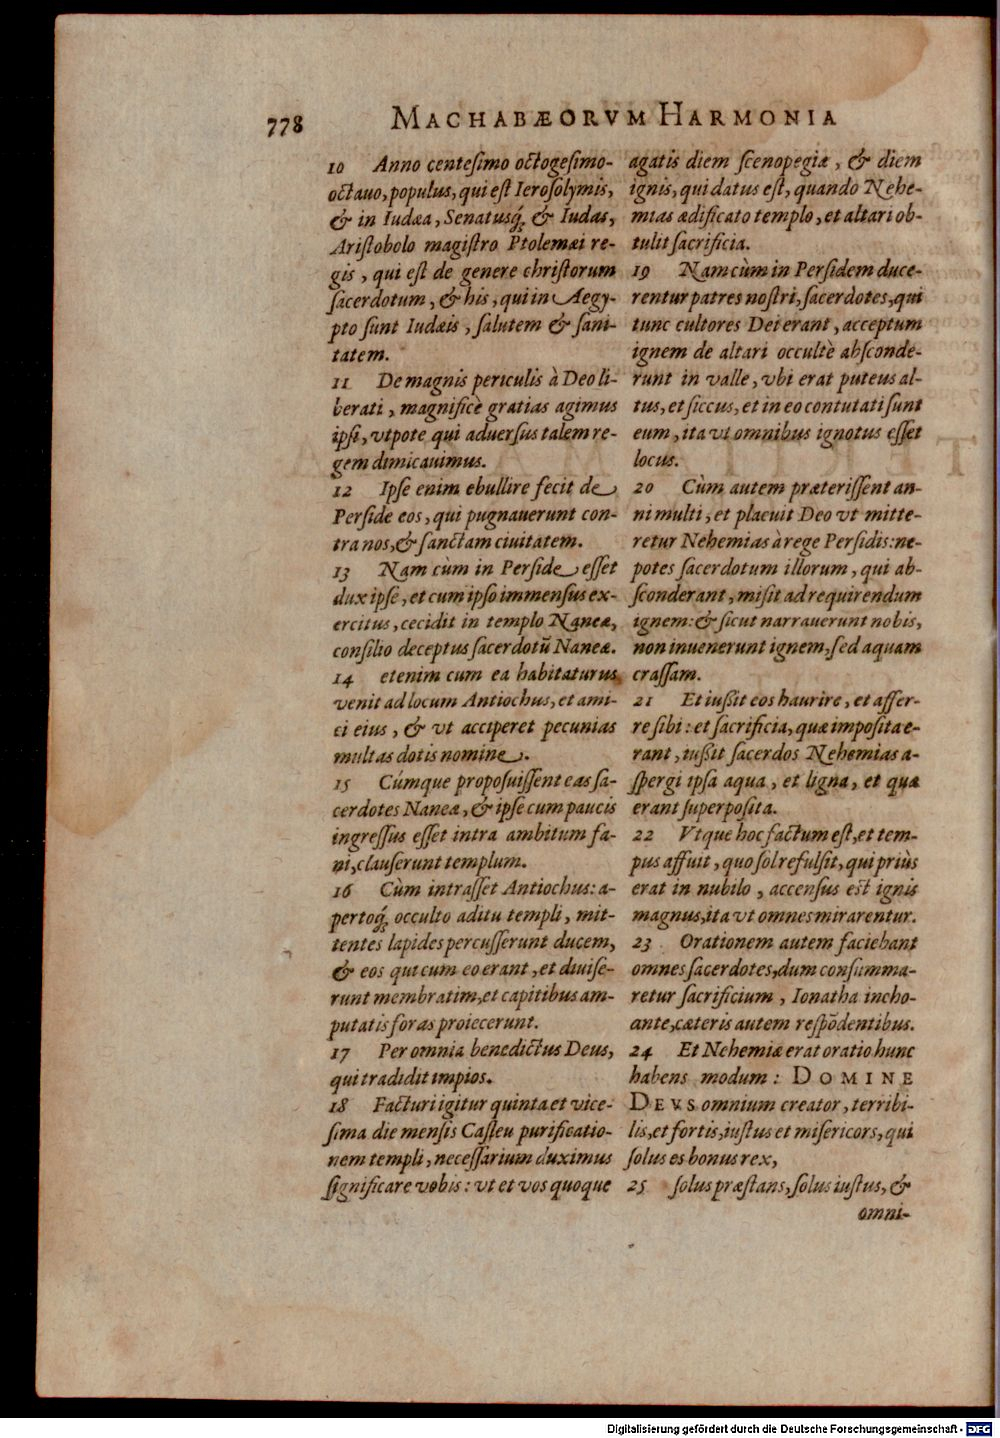 778 MACHABÆORVM HARMONIA
10 Anno centesimo octogesimo-
octauo, populus, qui est Ierosolymis,
& in Iudæa, Senatusq́, & Iudas,
Aristobolo magistro Ptolemæi re-
gis, qui est de genere christorum
sacerdotum, & his, qui in Aegy-
pto sunt Iudæis, salutem & sani-
tatem.
11 De magnis periculis à Deo li-
berati, magnificè gratias agimus
ipsi, vtpote qui aduersus talem re-
gem dimicauimus.
12 Ipse enim ebullire fecit de
Perside eos, qui pugnauerunt con-
tra nos, & sanctam ciuitatem.
13 Nam cum in Perside esset
dux ipse, et cum ipso immensus ex-
ercitus, cecidit in templo Naneæ,
consilio deceptus sacerdotũ Naneæ.
14 etenim cum ea habitaturus
venit ad locum Antiochus, et ami-
ci eius, & vt acciperet pecunias
multas dotis nomine.
15 Cúmque proposuissent eas sa-
cerdotes Naneæ, & ipse cum paucis
ingressus esset intra ambitum fa-
ni, clauserunt templum.
16 Cùm intrasset Antiochus: a-
pertoq́, occulto aditu templi, mit-
tentes lapides percusserunt ducem,
& eos qui cum eo erant, et diuise-
runt membratim, et capitibus am-
putatis foras proiecerunt.
17 Per omnia benedictus Deus,
qui tradidit impios.
18 Facturi igitur quinta et vice-
sima die mensis Casleu purificatio-
nem templi, necessarium duximus
significare vobis: vt et vos quoque
agatis diem scenopegiæ, & diem
ignis, qui datus est, quando Nehe-
mias ædificato templo, et altari ob-
tulit sacrificia.
19 Nam cùm in Persidem duce-
rentur patres nostri, sacerdotes, qui
tunc cultores Dei erant, acceptum
ignem de altari occultè absconde-
runt in valle, vbi erat puteus al-
tus, et siccus, et in eo contutati sunt
eum, ita vt omnibus ignotus esset
locus.
20 Cùm autem præterissent an-
ni multi, et placuit Deo vt mitte-
retur Nehemias à rege Persidis: ne-
potes sacerdotum illorum, qui ab-
sconderant, misit ad requirendum
ignem: & sicut narrauerunt nobis,
non inuenerunt ignem, sed aquam
crassam.
21 Et iußit eos haurire, et affer-
re sibi: et sacrificia, quæ imposita e-
rant, iußit sacerdos Nehemias a-
spergi ipsa aqua, et ligna, et quæ
erant superposita.
22 Vtque hoc factum est, et tem-
pus affuit, quo sol refulsit, qui priùs
erat in nubilo, accensus est ignis
magnus, ita vt omnes mirarentur.
23 Orationem autem faciebant
omnes sacerdotes, dum consumma-
retur sacrificium, Ionatha incho-
ante, cæteris autem respõdentibus.
24 Et Nehemiæ erat oratio hunc
habens modum: DOMINE
DEVS omnium creator, terribi-
lis, et fortis, iustus et misericors, qui
solus es bonus rex,
25 solus præstans, solus iustus, &
omni-
Digitalisierung gefördert durch die Deutsche Forschungsgemeinschaft - DFG